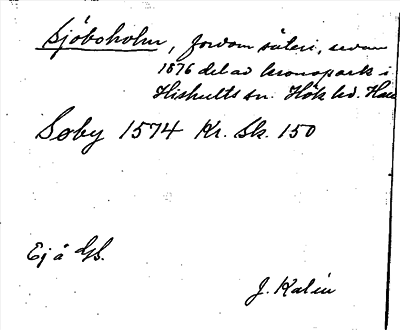 Sjöboholm, fordom säteri, sedan
1876 del av kronopark i
Hishults sn. Hök hd. Hall
Soby 1574 Kr. Sk. 150
Ej å GS.
J. Kalén